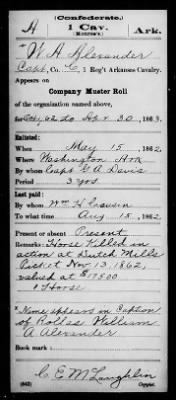 (Confederate.)
A 1 Cav. Ark.
(Monroe's.)
W A Alexander
Capt, Co. C, 1 Reg't Arkansas Cavalry.
Appears on
Company Muster Roll
of the organization named above,
for 62 to Apr 30, 1863.
Enlisted:
When May 15, 1862.
Where Washington Ark
By whom Capt A Davis
Period 3 yrs
Last paid:
By whom Wm H
To what time Aug 15, 1862.
Present or absent Present
Remarks: Horse Killed in
action at Dutch Mills
Picket Nov 13, 1862,
valued at $175.00
1 Horse
* Name appears in Caption
of Roll as William
A Alexander
Book mark:
C. E. McLaughlin
(642) Copyist.